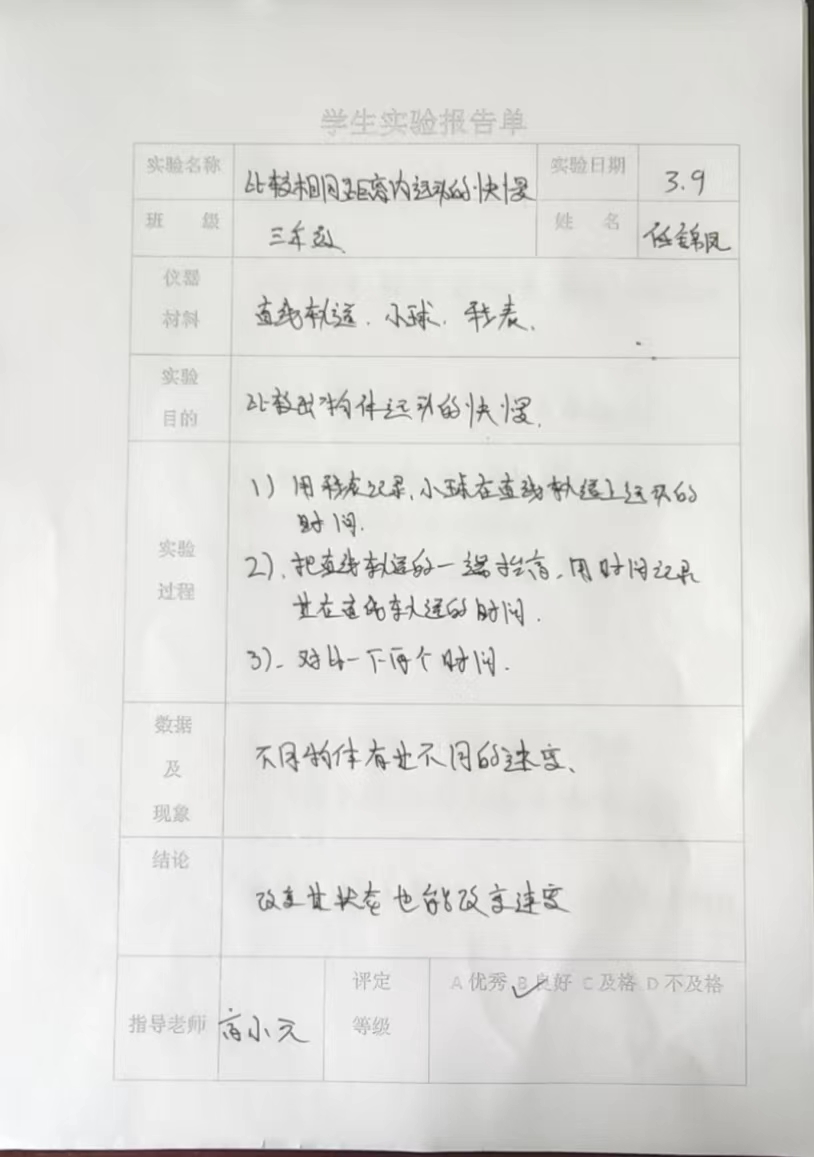 学生实验报告单
实验名称 比较相同距离内运动的快慢 实验日期 3.9
班 级 三年级 姓 名 任锦凤
仪器
材料 直线轨道、小球、秒表、
实验
目的 比较出物体运动的快慢、
实验
过程
1)用秒表记录,小球在直线轨道上运动的
时间.
2)、把直线轨道的一端抬高、用时间记录
其在直线轨道的时间.
3)、对比一下两个时间.
数据
及
现象
不同物体有其不同的速度、
结论
改变其状态也能改变速度
指导老师 高小元 评定
等级 A优秀 B良好 C及格 D不及格